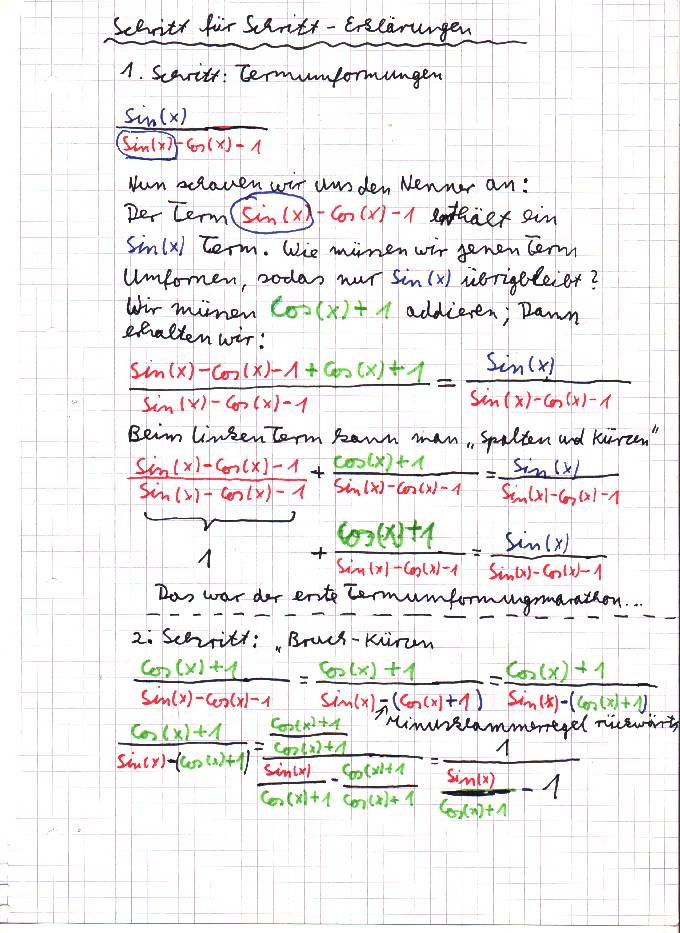 Schritt für Schritt - Erklärungen
1. Schritt: Termumformungen
Sin(x)
Sin(x)-Cos(x)-1
Nun schauen wir uns den Nenner an:
Der Term Sin(x)-Cos(x)-1 enthält ein
Sin(x) Term. Wie müssen wir jenen Term
Umformen, sodas nur Sin(x) übrigbleibt?
Wir müssen Cos(x)+1 addieren; Dann
erhalten wir:
Sin(x)-Cos(x)-1+Cos(x)+1 = Sin(x)
Sin(x)-Cos(x)-1 Sin(x)-Cos(x)-1
Beim linken Term kann man „Spalten und Kürzen"
Sin(x)-Cos(x)-1 + Cos(x)+1 = Sin(x)
Sin(x)-Cos(x)-1 Sin(x)-Cos(x)-1 Sin(x)-Cos(x)-1
1 + Cos(x)+1 = Sin(x)
Sin(x)-Cos(x)-1 Sin(x)-Cos(x)-1
Das war der erste Termumformungsmarathon...
2. Schritt: „Bruch-Kürzen
Cos(x)+1 = Cos(x)+1 = Cos(x)+1
Sin(x)-Cos(x)-1 Sin(x)-(Cos(x)+1) Sin(x)-(Cos(x)+1)
Minusklammerregel rückwärts
Cos(x)+1 = Cos(x)+1 = 1
Sin(x)-(Cos(x)+1) Cos(x)+1
Sin(x) - Cos(x)+1 Sin(x) - 1
Cos(x)+1 Cos(x)+1 Cos(x)+1